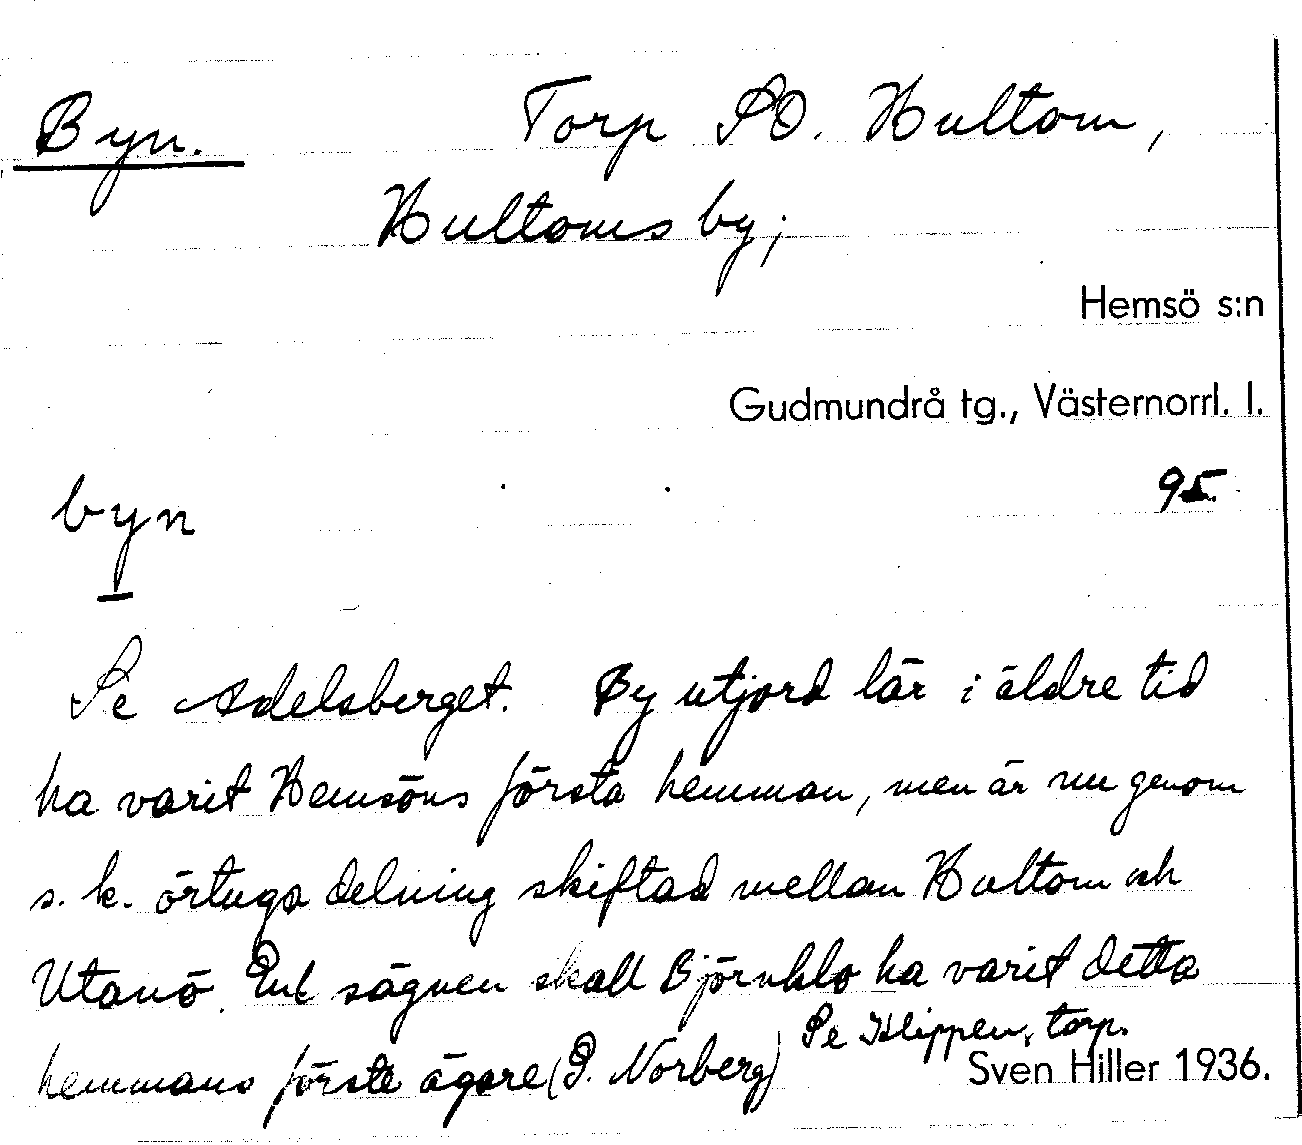 Byn. Torp SO. Hultom,
Hultoms by;
Hemsö s:n
Gudmundrå tg., Västernorrl. l.
95.
byn
Se Adelsberget. By utjord lär i äldre tid
ha varit Hemsöns första hemman, men är nu genom
s. k. örtuga delning skiftad mellan Hultom och
Utanö. Enl sägnen skall Björnklo ha varit detta
hemmans förste ägare (P. Norberg) Se Klippen, torp.
Sven Hiller 1936.